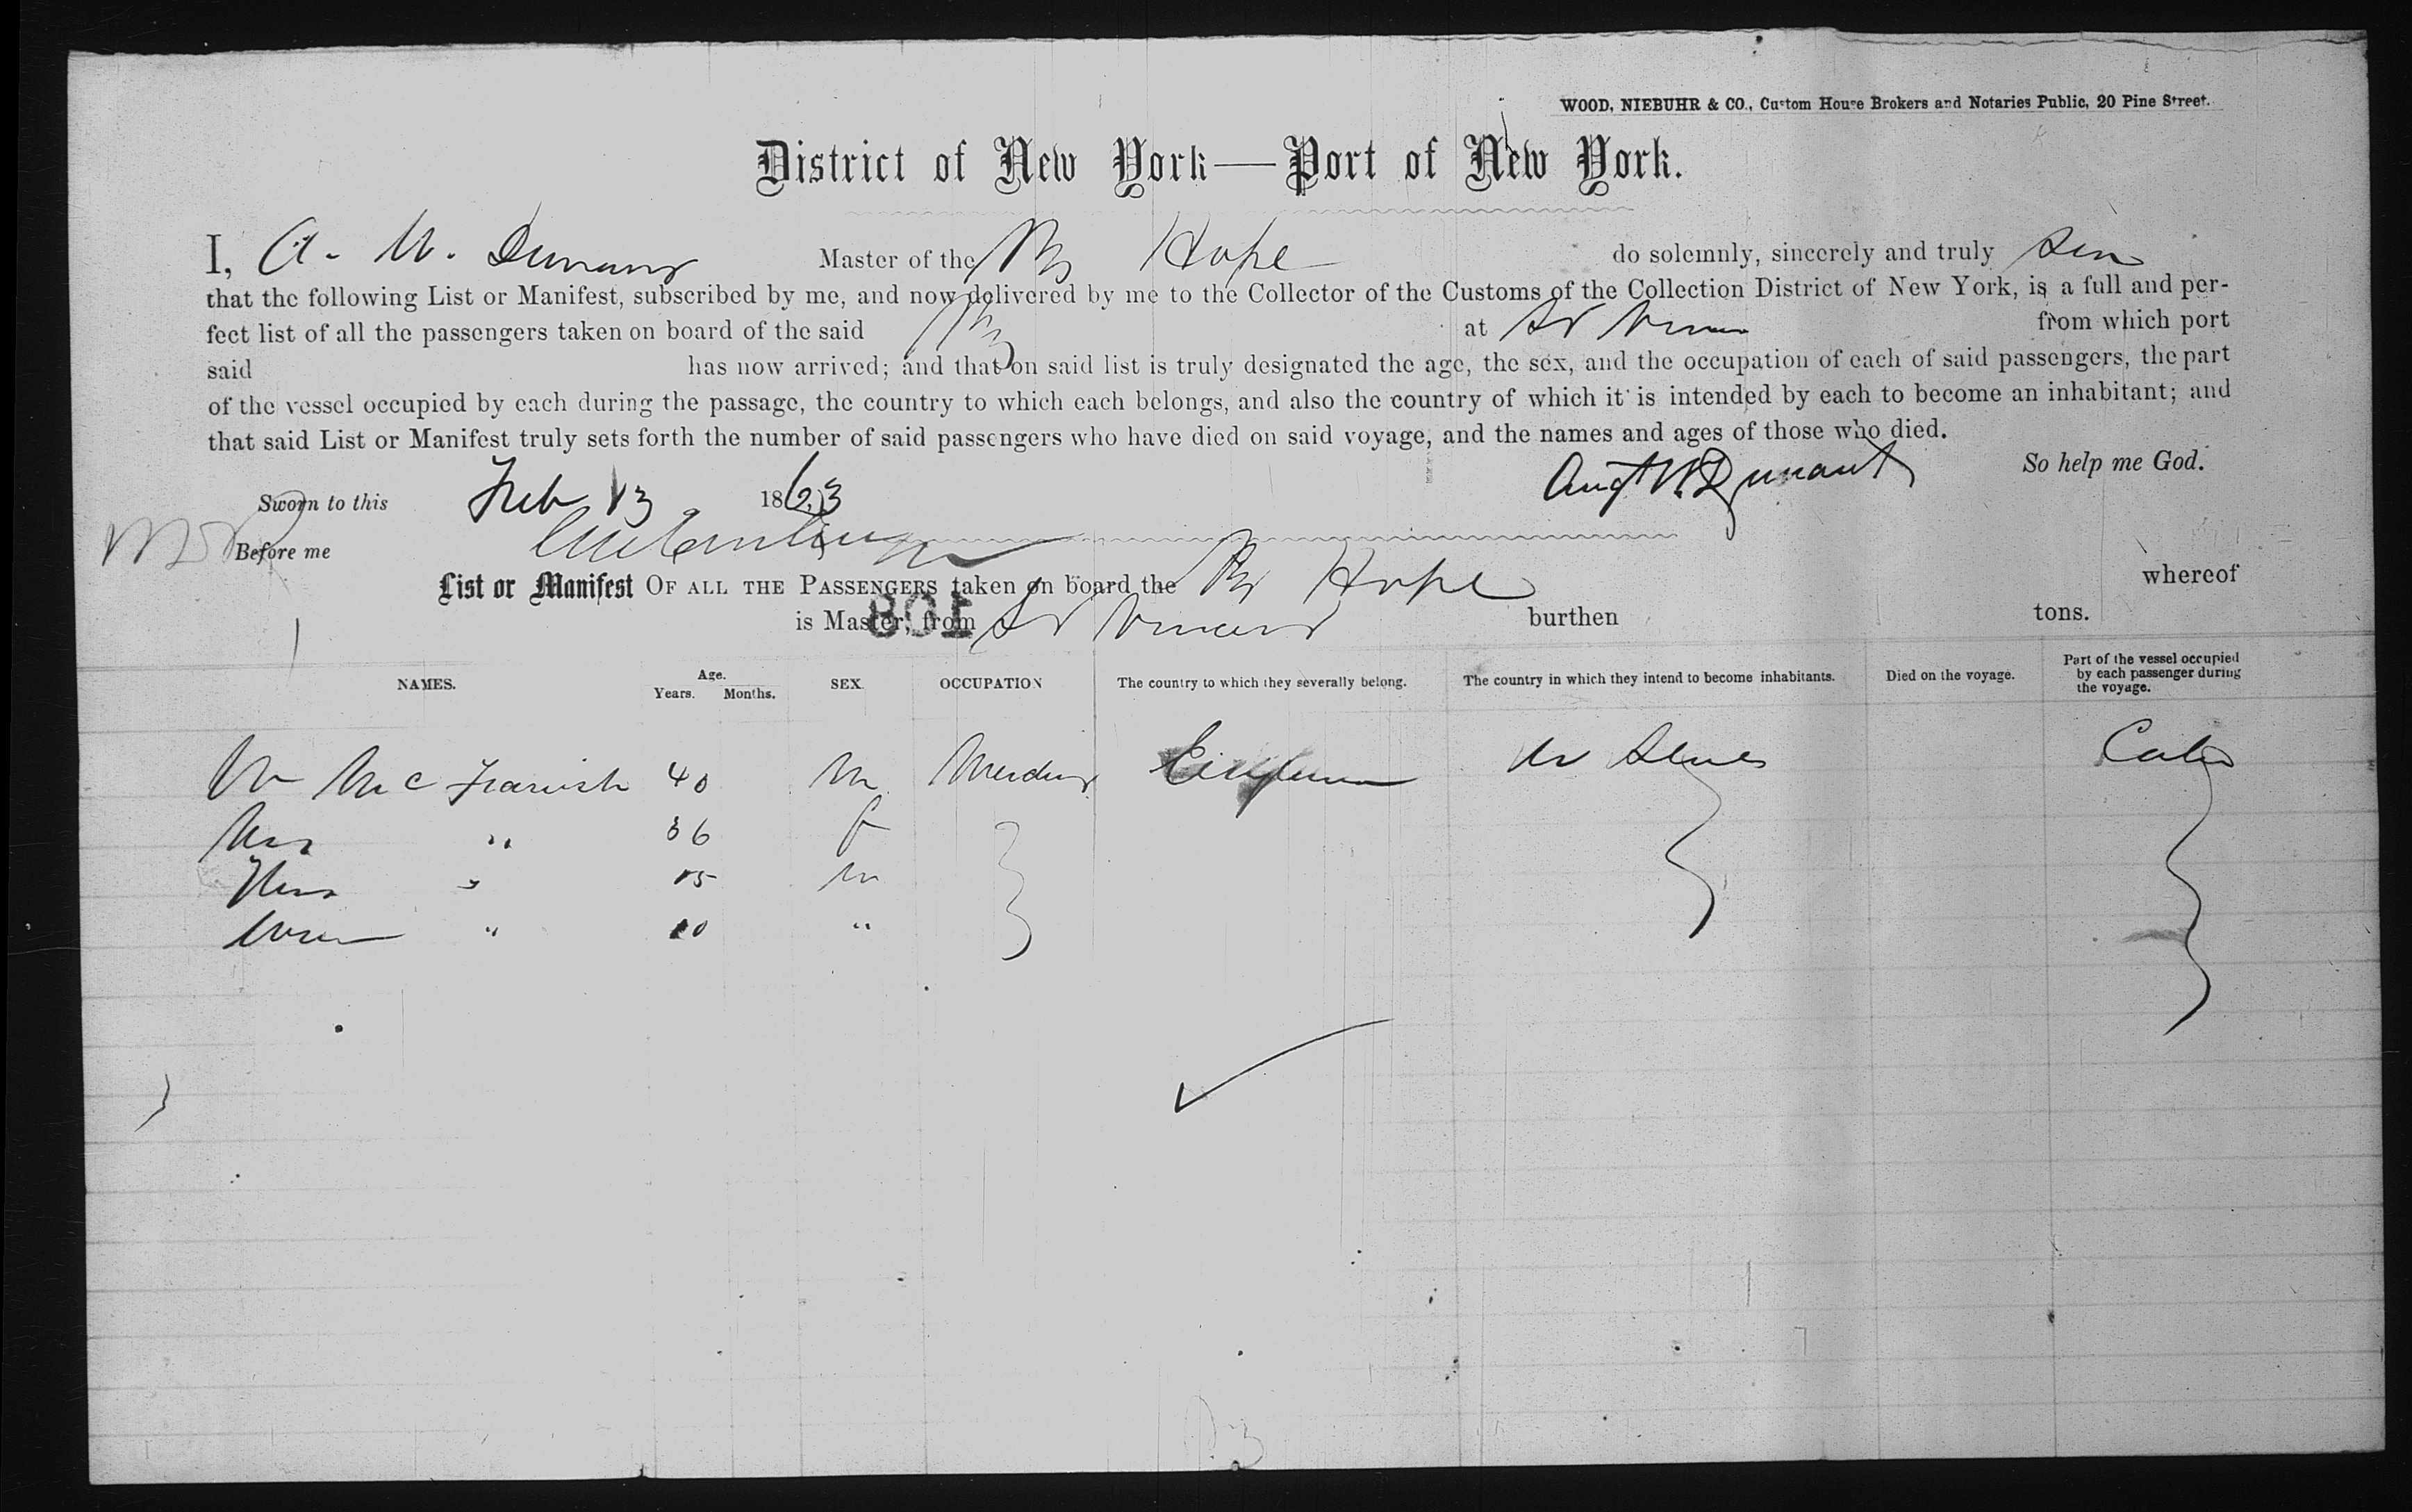 WOOD, NIEBUHR & CO., Custom House Brokers and Notaries Public, 20 Pine Street.
District of New York—Port of New York.
I, A. W. Master of the Br Hope do solemnly, sincerely and truly
that the following List or Manifest, subscribed by me, and now delivered by me to the Collector of the Customs of the Collection District of New York, is a full and per-
fect list of all the passengers taken on board of the said Br at St from which port
said has now arrived; and that on said list is truly designated the age, the sex, and the occupation of each of said passengers, the part
of the vessel occupied by each during the passage, the country to which each belongs, and also the country of which it is intended by each to become an inhabitant; and
that said List or Manifest truly sets forth the number of said passengers who have died on said voyage, and the names and ages of those who died.
So help me God.
Sworn to this Feb 13 1863
Before me
List or Manifest OF ALL THE PASSENGERS taken on board the Br Hope whereof
is Master, from St burthen tons.
108
NAMES. Age. Years. Months. SEX. OCCUPATION The country to which they severally belong. The country in which they intend to become inhabitants. Died on the voyage. Part of the vessel occupied by each passenger during the voyage.
Mc 40 m
Mrs " 36 f
" 15 m
" 10 "